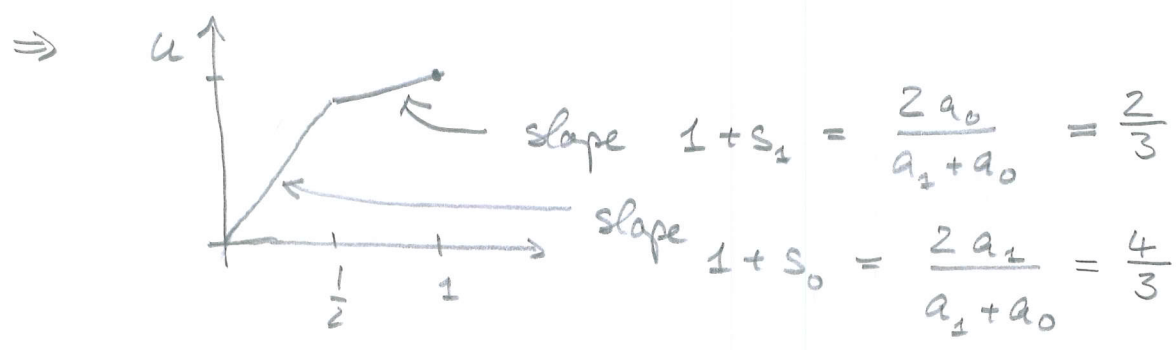 ⇒ u
slope 1 + s₁ = 2 a₀ / (a₁ + a₀) = 2/3
slope 1 + s₀ = 2 a₁ / (a₁ + a₀) = 4/3
1/2 1